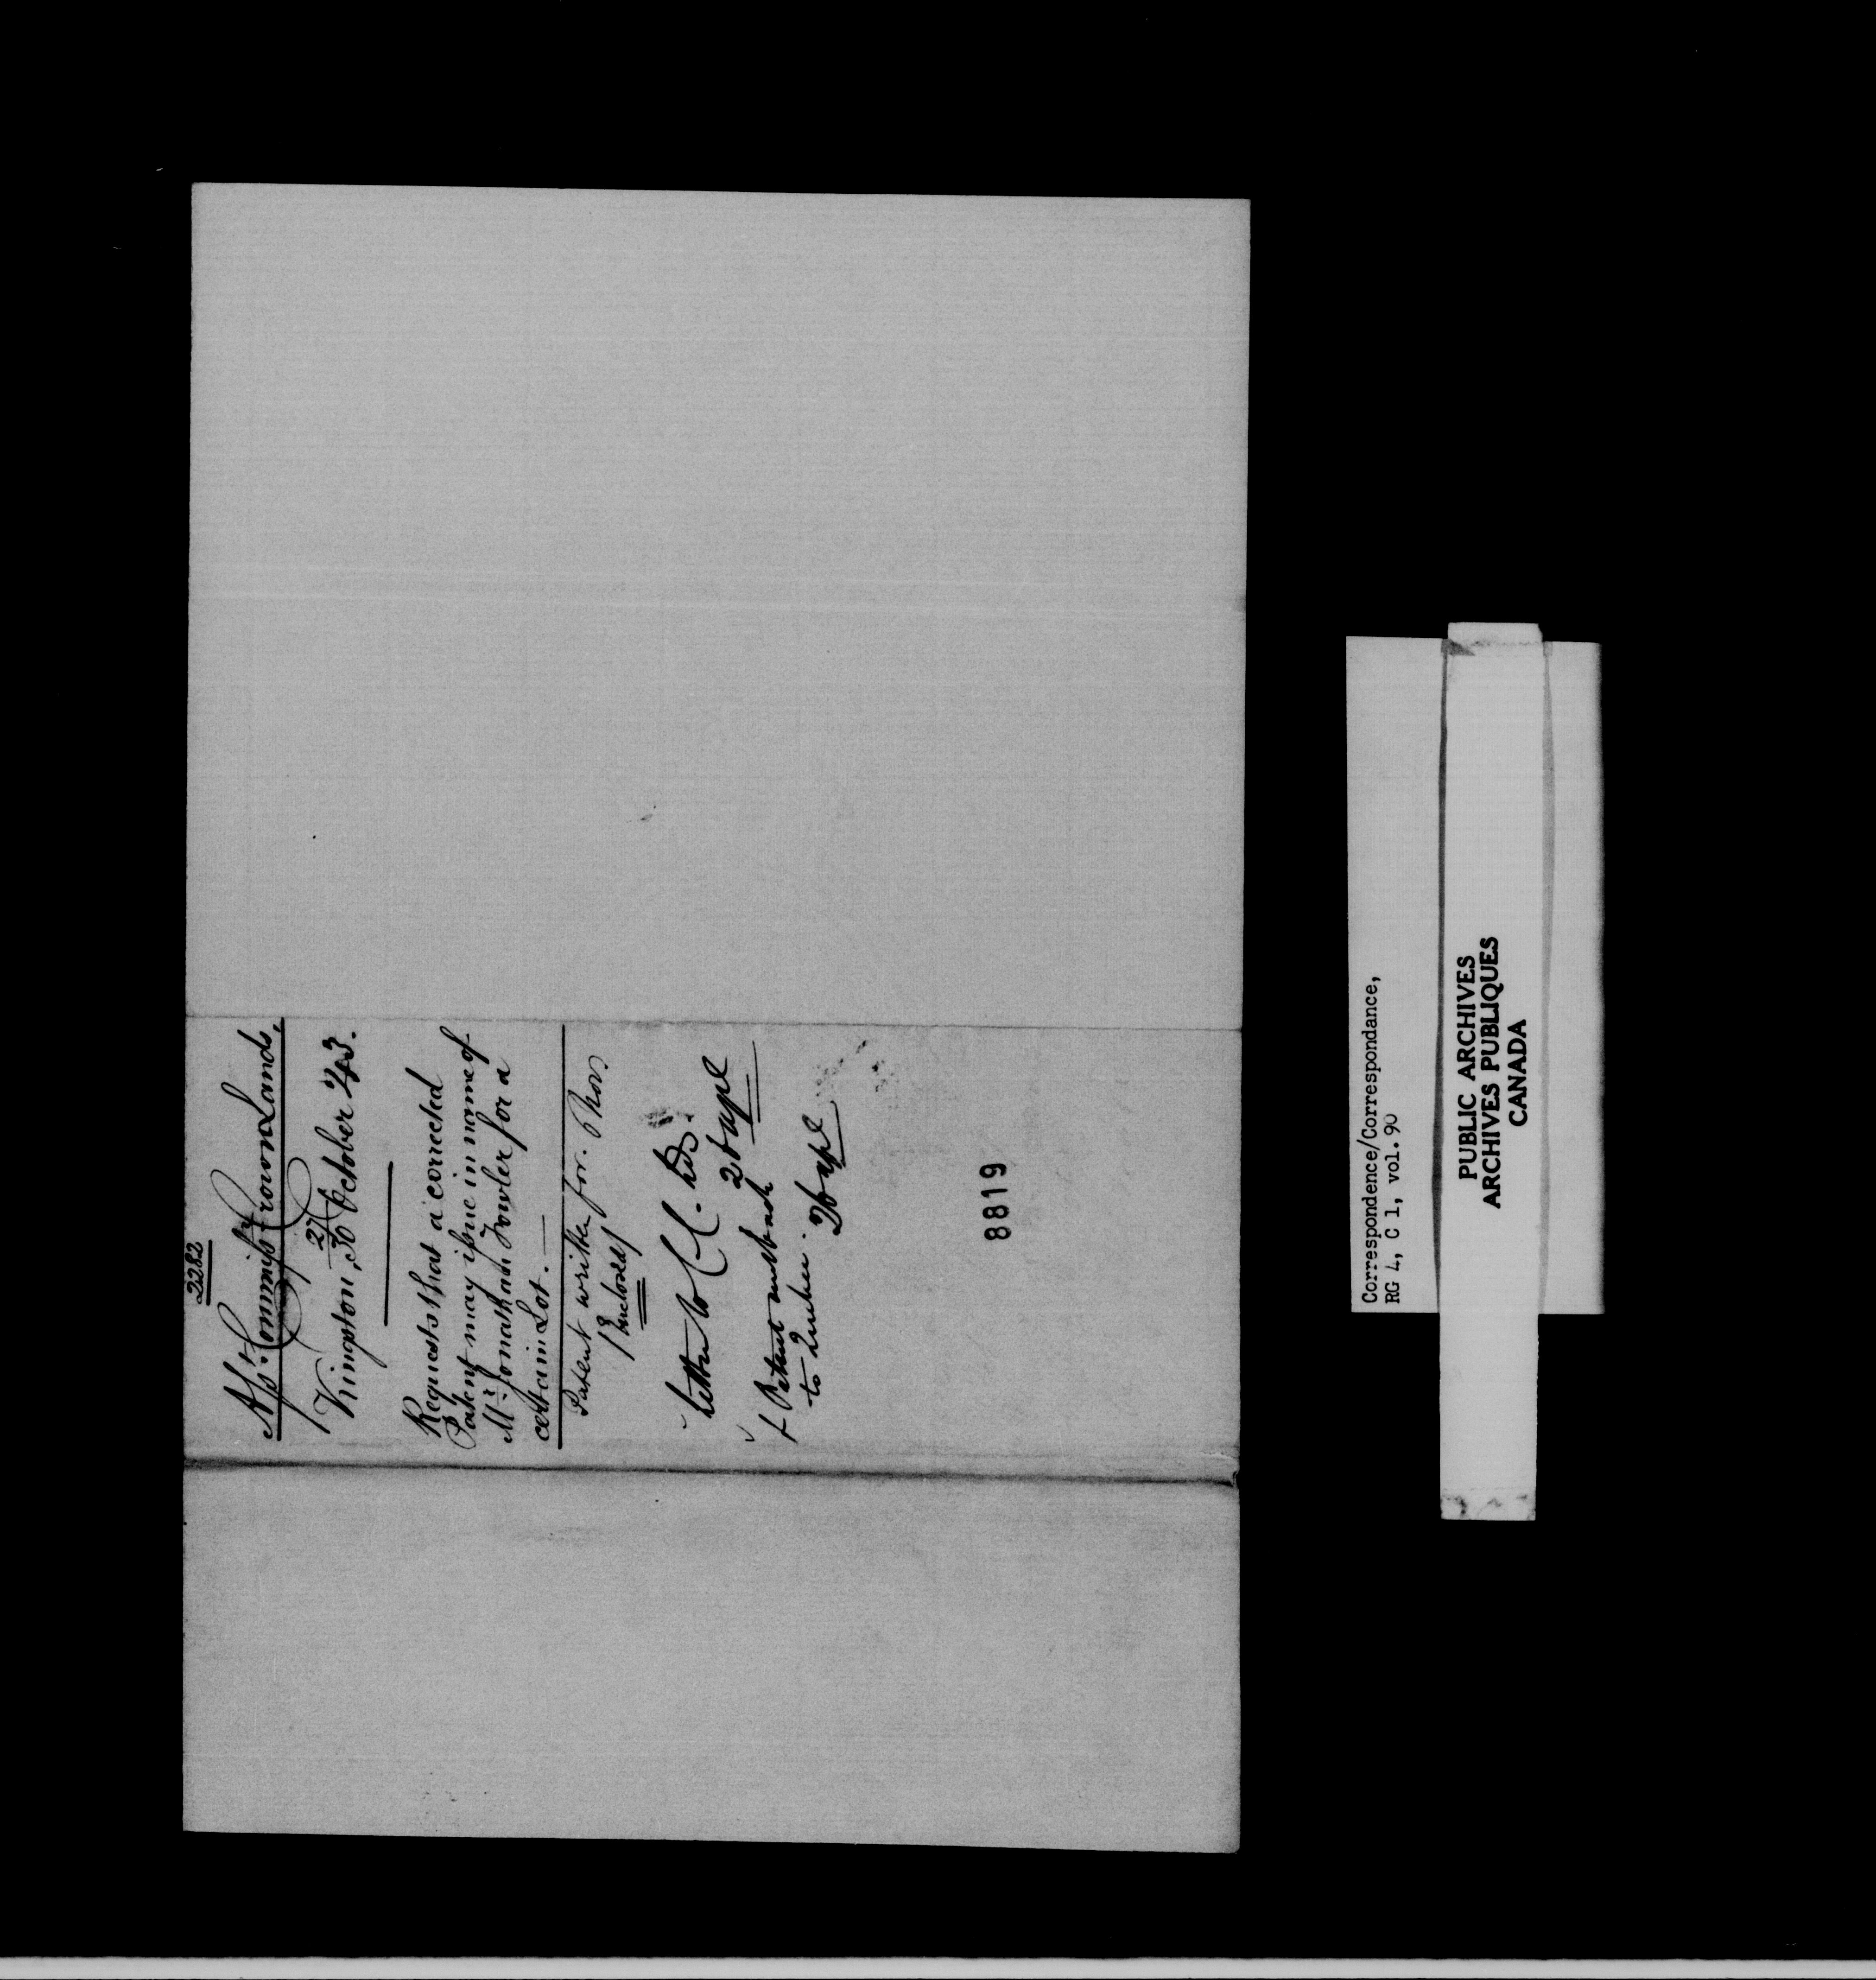 2282
Asst. Commissr. Crown Lands,
Kingston, 30 October 43.
27
Requests that a corrected
Patent may issue in name of
Mr. Jonathan Fowler for a
certain Lot. —
Patent written for. 6 Nov
1 Enclosed
Letter to C. C. Lds.
26 apl
& Patent sent back
to Quebec. 26 apl
8819
Correspondence/Correspondance,
RG 4, C 1, vol.90
PUBLIC ARCHIVES
ARCHIVES PUBLIQUES
CANADA